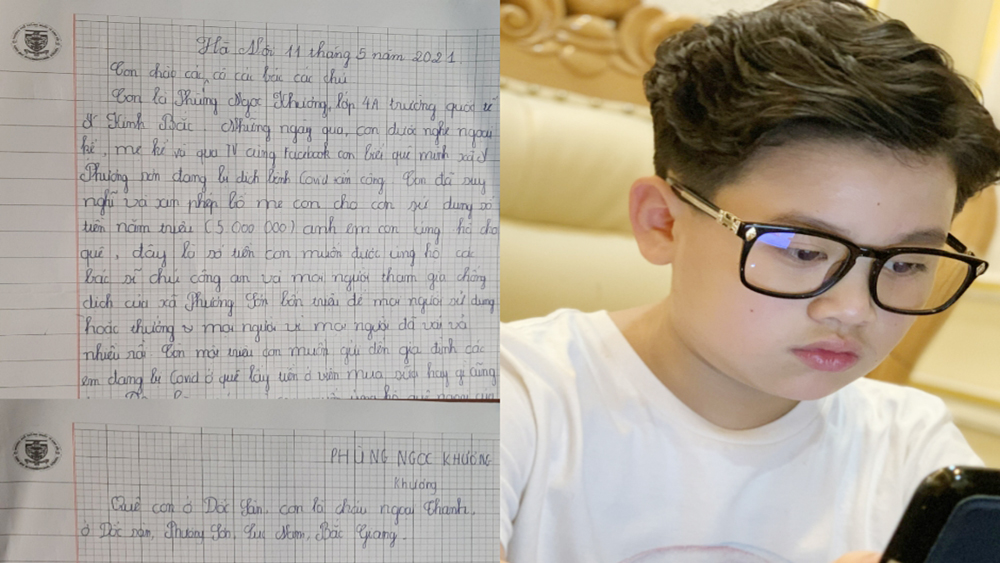 Hà Nội 11 tháng 5 năm 2021.
Con chào các cô các bác các chú
Con là Phùng Ngọc Khương, lớp 4A trường quốc tế
Kinh Bắc. Những ngày qua, con được nghe ngoại
kể, mẹ kể và qua TV cùng Facebook con biết quê mình xã
Phương Sơn đang bị dịch bệnh Covid căng. Con đã suy
nghĩ và xin phép bố mẹ con cho con sử dụng số
tiền năm triệu (5 000 000) anh em con ủng hộ cho
quê, đây là số tiền con muốn được ủng hộ các
bác sĩ chú công an và mọi người tham gia chống
dịch của xã Phương Sơn bốn triệu để mọi người sử dụng
hoặc thưởng mọi người vì mọi người đã vất vả
nhiều rồi. Còn một triệu con muốn gửi đến gia đình các
em đang bị Covid ở quê lấy tiền ở viện mua sữa hay gì cũng
ủng hộ quê ngoại của
PHÙNG NGỌC KHƯƠNG
Khương
Quê con ở Dốc Sàn, con là cháu ngoại Thanh,
ở Dốc Sàn, Phương Sơn, Lục Nam, Bắc Giang.